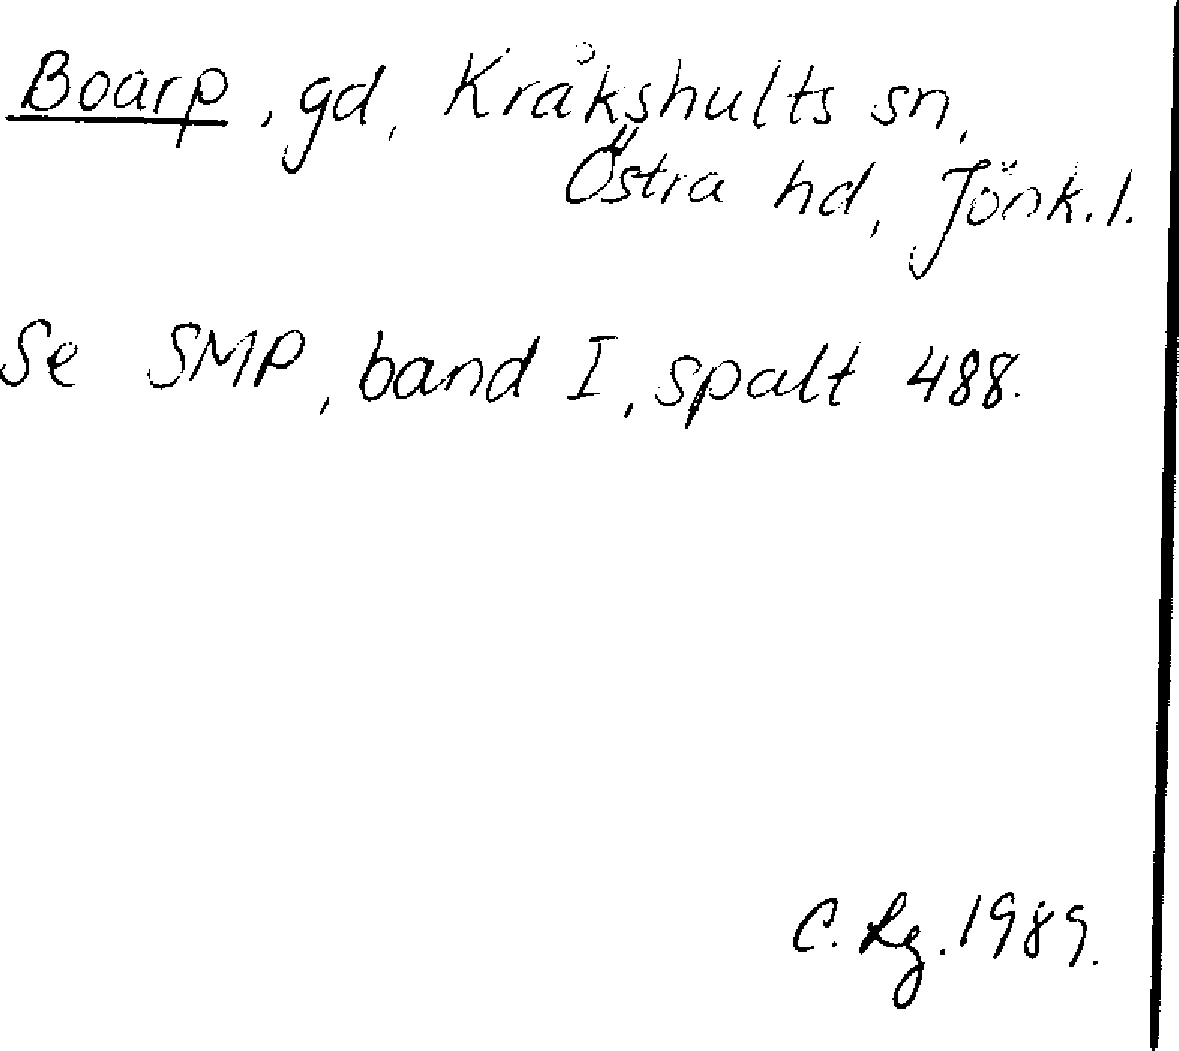 Boarp, gd, Kråkshults sn,
Östra hd, Jönk. l.
Se SMP, band I, spalt 488.
C. Lg. 1989.